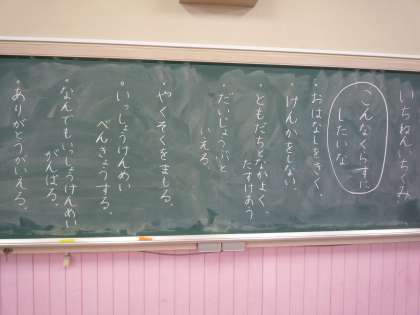 いちねんいちくみ
こんなくらすに
したいな
・おはなしをきく。
・けんかをしない。
・ともだちとなかよく。
たすけあう
・だいじょうぶと
いえる。
・やくそくをまもる。
・いっしょうけんめい
べんきょうする。
・なんでもいっしょうけんめい
がんばる。
・ありがとうがいえる。